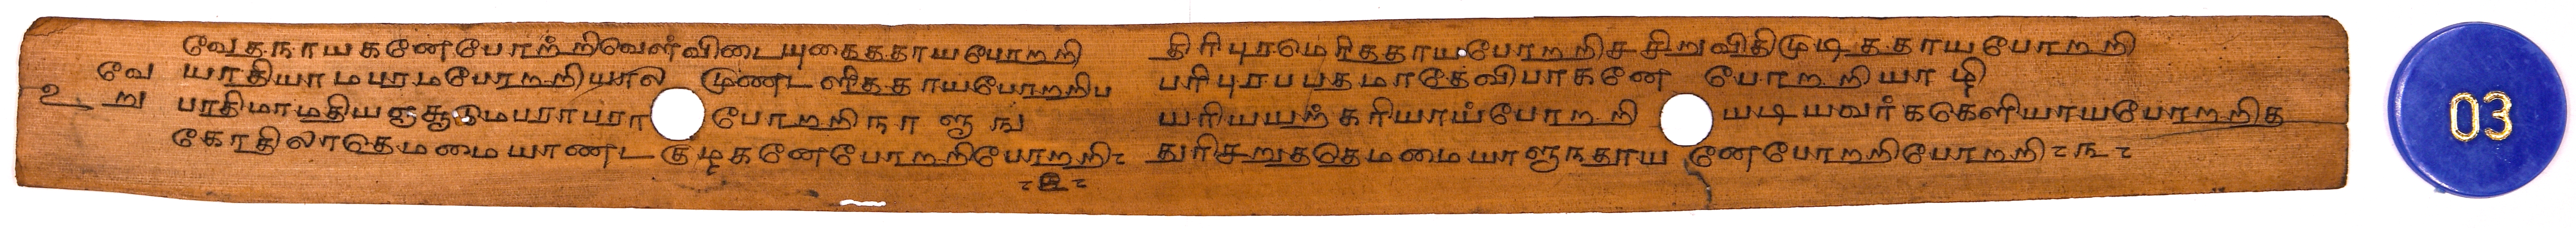 வேதநாயகனேபோற்றிவெள்விடையுகைததாயபோறறி திரிபுரமெரிததாயபோறறிச சிறுவிதிமுடிததாயபோறறி
வே யாதியாமபரமபோறறியால முணடளித்தாயபோறறிப பரிபுரபபதமாதேவிபாகனே போறறியாழி
உ று பாதிமாமதியஞசூடுமபராபரா போறறிநாளும யரியயற்கரியாய்போறறி யடியவர்ககெளியாயபோறறித
கோதிலாதெமமையாணட குழகனேபோறறிபோறறி துரிசறுததெமமையாளுநதூய னேபோறறிபோறறி ௩
௨
03